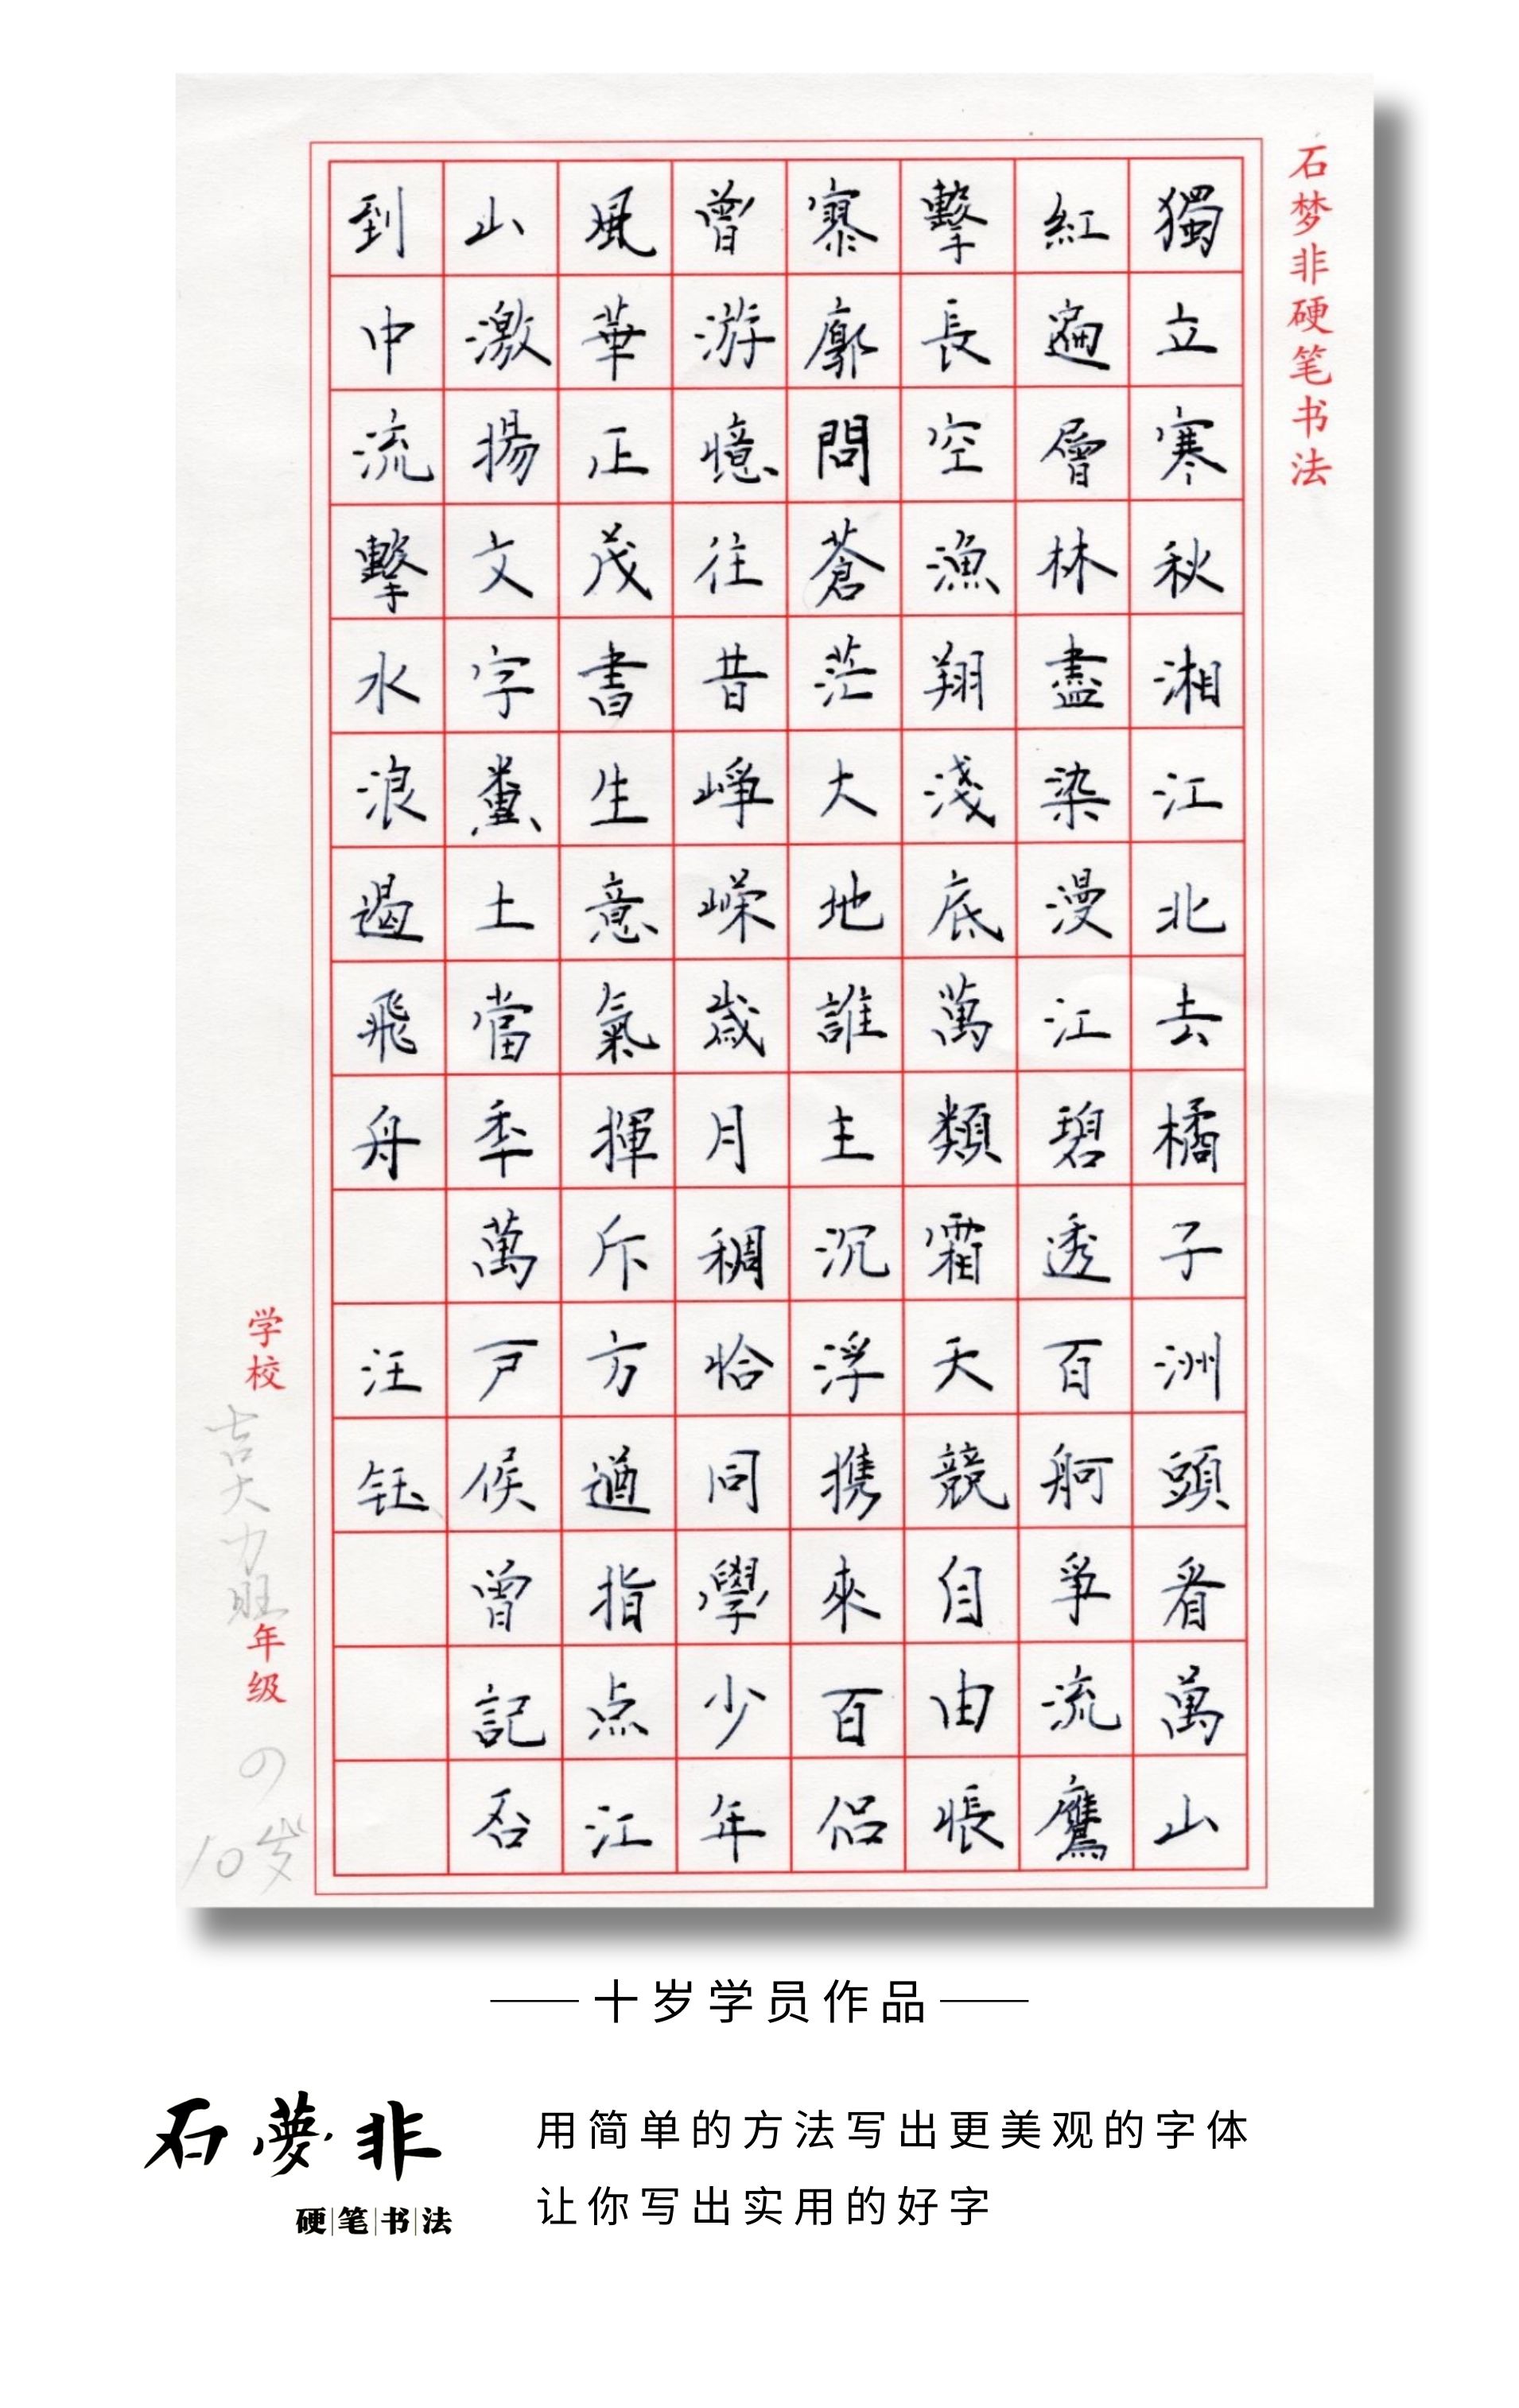 石梦非硬笔书法
獨立寒秋湘江北去橘子洲頭看萬山
紅遍層林盡染漫江碧透百舸爭流鷹
擊長空漁翔淺底萬類霜天競自由悵
寥廓問蒼茫大地誰主沉浮携來百侣
曾游憶往昔崢嶸歲月稠恰同學少年
風華正茂書生意氣揮斥方遒指点江
山激揚文字糞土當年萬户侯曾記否
到中流擊水浪遏飛舟 汪钰
学校
年级
10岁
十岁学员作品
石夢非
硬笔书法
用简单的方法写出更美观的字体
让你写出实用的好字